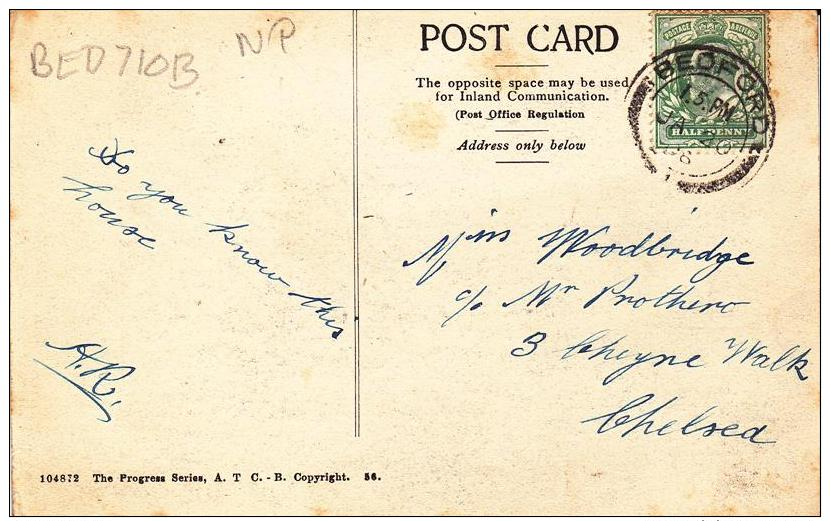 BED710B NP
POST CARD
The opposite space may be used
for Inland Communication.
(Post Office Regulation
Address only below
POSTAGE & REVENUE
HALF PENNY
BEDFORD
Do you know this
house
A.R.
Miss Woodbridge
c/o Mr Prothero
3 Cheyne Walk
Chelsea
104872 The Progress Series, A. T C. - B. Copyright. 56.